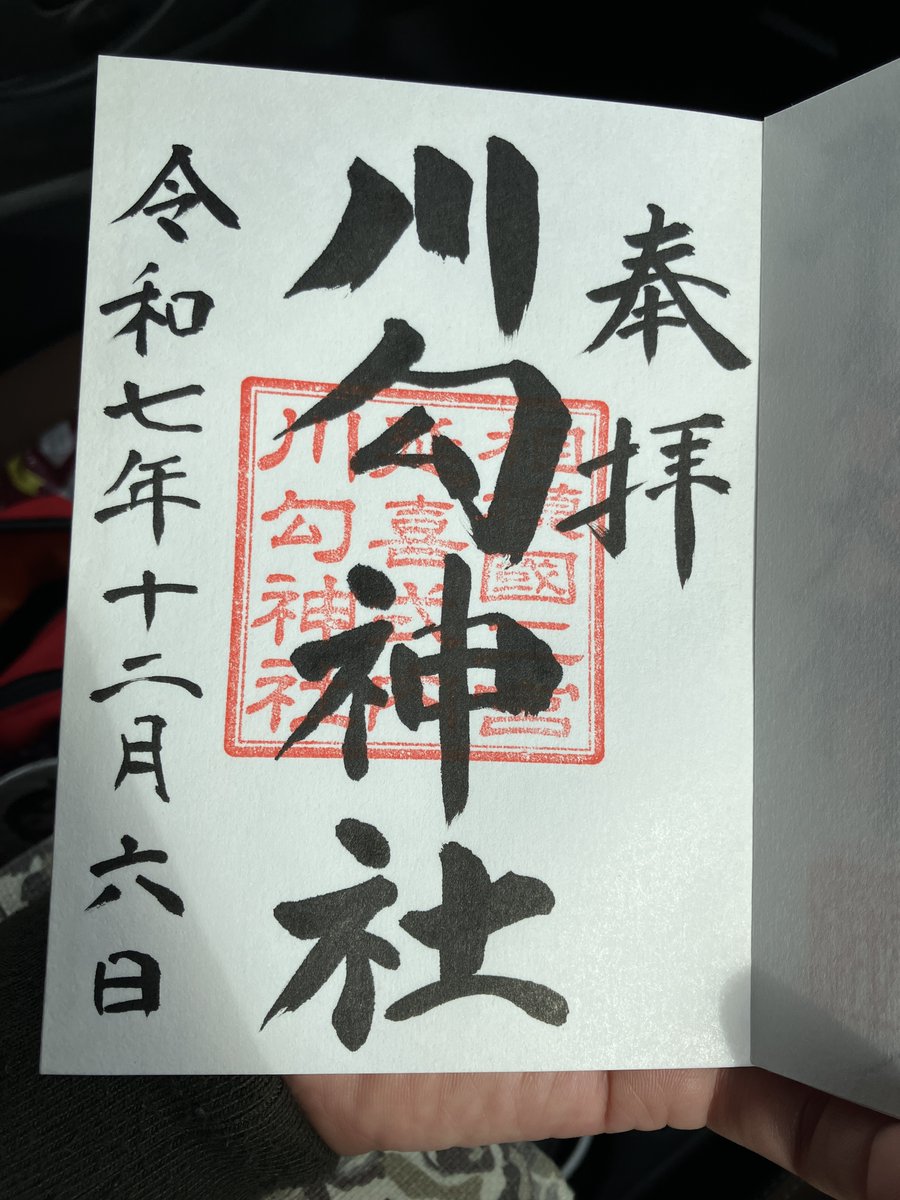 奉拝
川勾神社
相模國二之宮
延喜式内
川勾神社
令和七年十二月六日